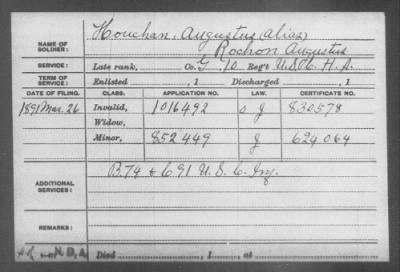 NAME OF SOLDIER: Houchan, Augustus (Alias)
Rochon Augustus
SERVICE: Late rank, Co. G, 10 Reg't U.S.C. H.A.
TERM OF SERVICE: Enlisted , 1 Discharged , 1
DATE OF FILING. CLASS. APPLICATION NO. LAW. CERTIFICATE NO.
1891 Mar. 26 Invalid, 1016492 J 830578
Widow,
Minor, 852449 J 624064
ADDITIONAL SERVICES: B. 74 & C 91 U.S.C. Inf.
REMARKS:
N.D.A. Died , 1 , at